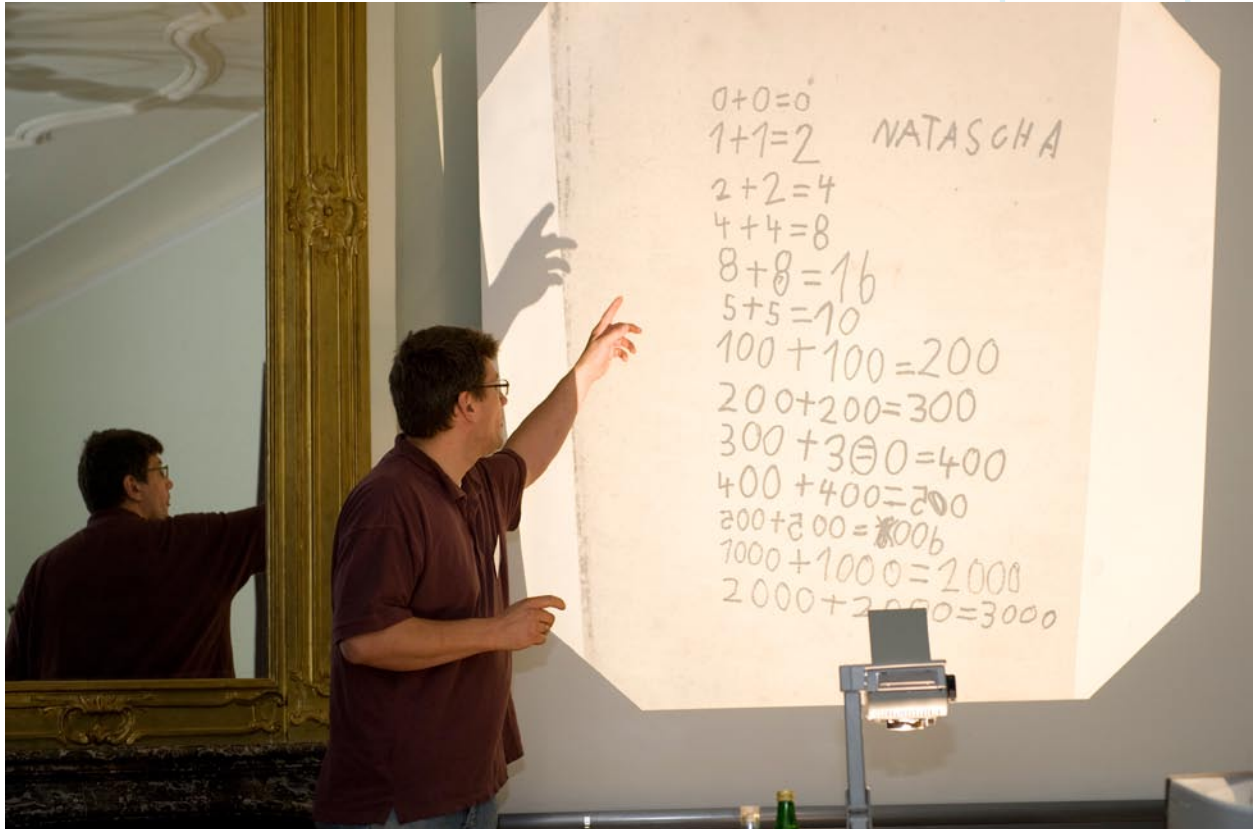 0+0=0
1+1=2 NATASCHA
2+2=4
4+4=8
8+8=16
5+5=10
100+100=200
200+200=300
300+300=400
400+400=500
500+500=600
1000+1000=2000
2000+2000=3000